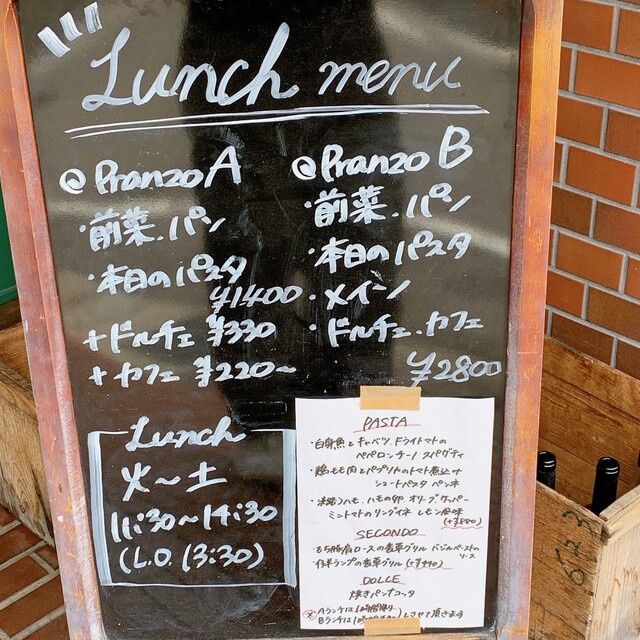 Lunch menu
Pranzo A
・前菜・パン
・本日のパスタ
¥1400
+ドルチェ ¥330
+カフェ ¥220~
Pranzo B
・前菜・パン
・本日のパスタ
・メイン
・ドルチェ・カフェ
¥2800
Lunch
火~土
11:30~14:30
(L.O. 13:30)
PASTA
・白身魚とキャベツ、ドライトマトの
ペペロンチーノ スパゲティ
・鶏もも肉とパプリカのトマト煮込み
ショートパスタ ペンネ
・淡路産ハモ、ハモの卵、オリーブ、ケッパー
ミニトマトのリングイネ レモン風味
(+¥880)
SECONDO
・もち豚肩ロースの香草グリル バジルペーストの
ソース
・仔羊ランプの香草グリル(+¥440)
DOLCE
焼きパンナコッタ
Aランチは1時間
Bランチは1時間
とさせて頂きます